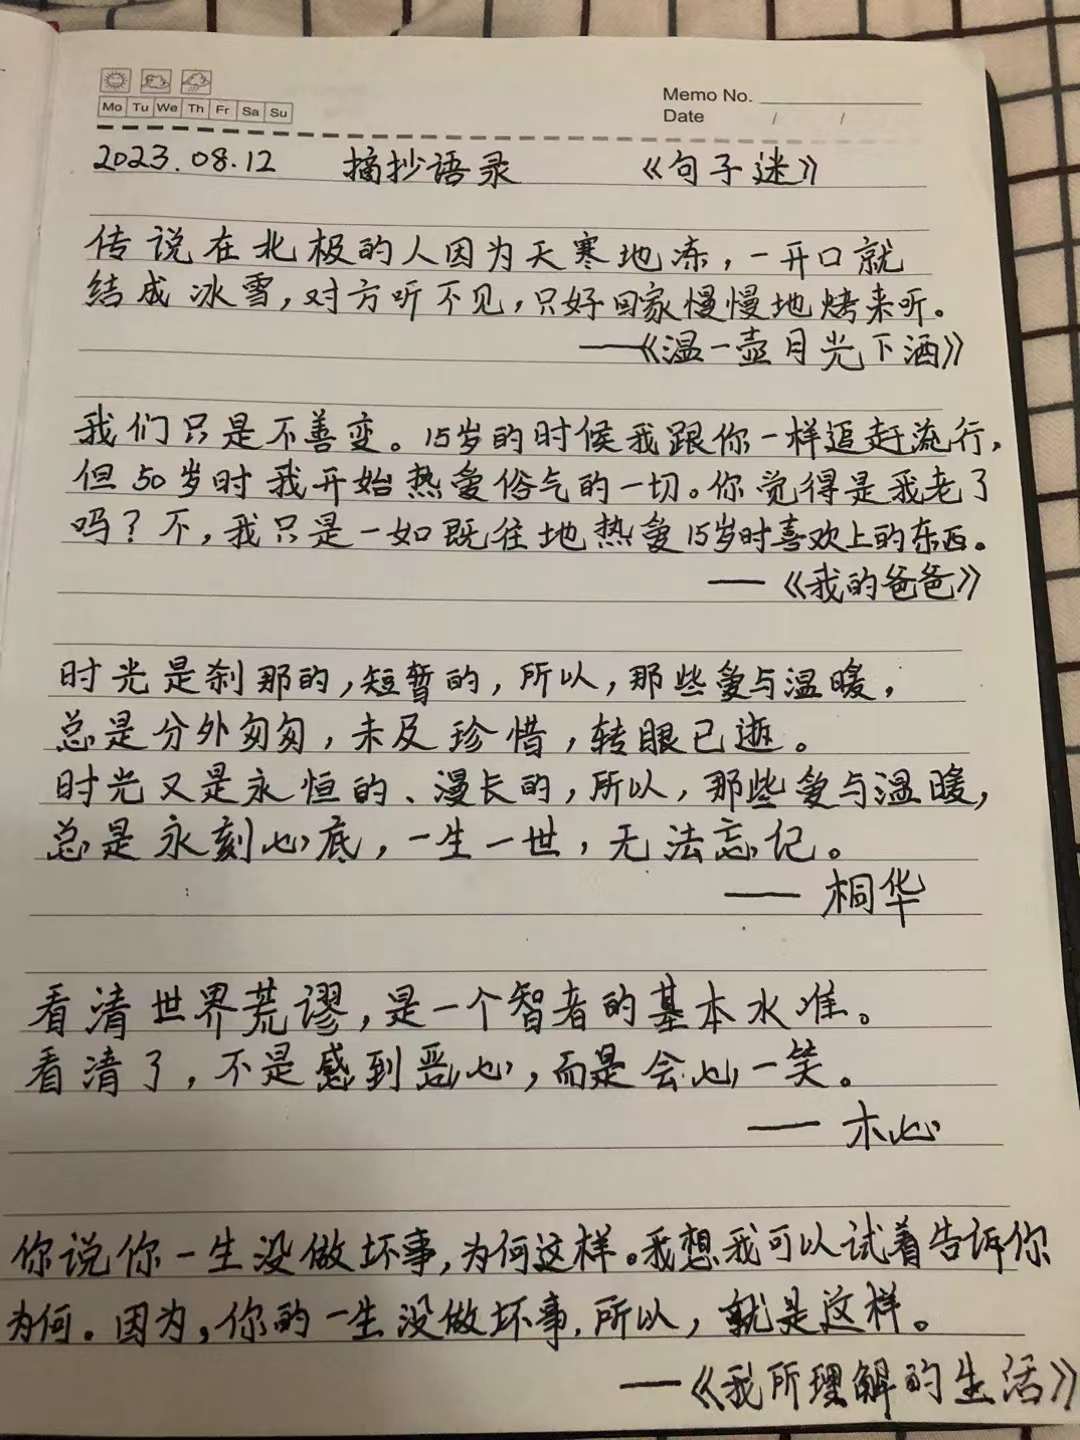 Mo Tu We Th Fr Sa Su
Memo No.
Date / /
2023.08.12 摘抄语录 《句子迷》
传说在北极的人因为天寒地冻，一开口就
结成冰雪，对方听不见，只好回家慢慢地烤来听。
——《温一壶月光下酒》
我们只是不善变。15岁的时候我跟你一样追赶流行，
但50岁时我开始热爱俗气的一切。你觉得是我老了
吗？不，我只是一如既往地热爱15岁时喜欢上的东西。
——《我的爸爸》
时光是刹那的，短暂的，所以，那些爱与温暖，
总是分外匆匆，未及珍惜，转眼已逝。
时光又是永恒的、漫长的，所以，那些爱与温暖，
总是永刻心底，一生一世，无法忘记。
——桐华
看清世界荒谬，是一个智者的基本水准。
看清了，不是感到恶心，而是会心一笑。
——木心
你说你一生没做坏事，为何这样。我想我可以试着告诉你
为何。因为，你的一生没做坏事，所以，就是这样。
——《我所理解的生活》